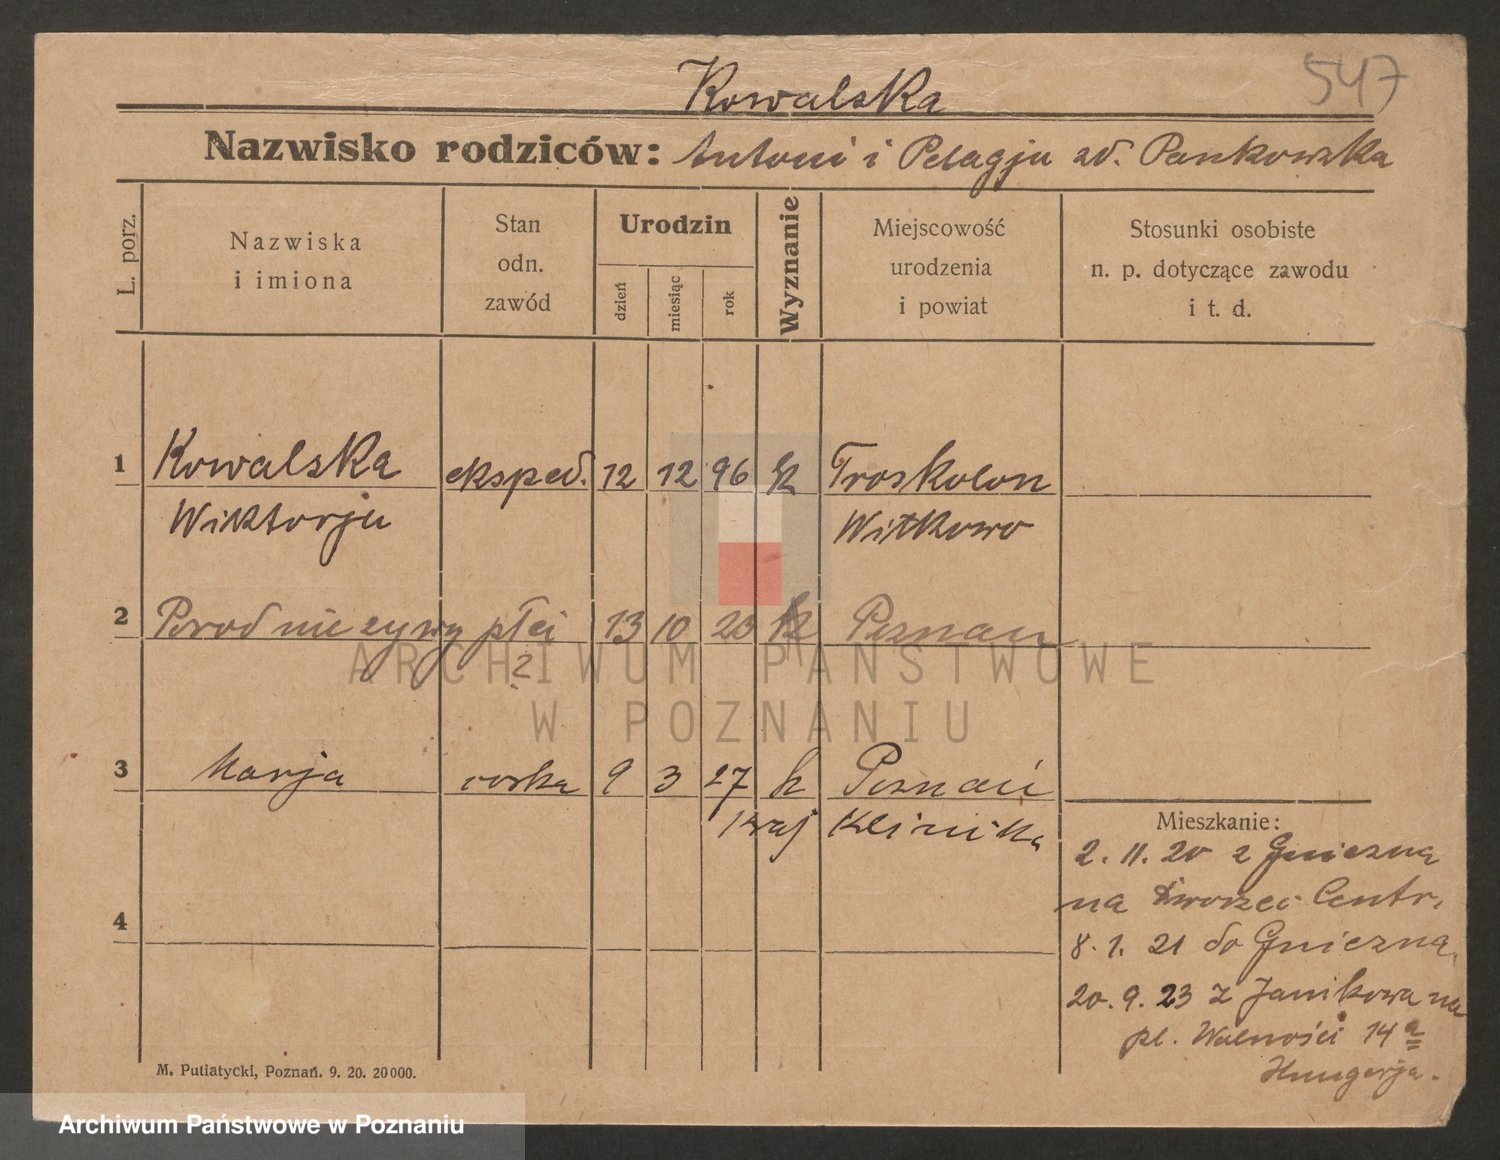 547
Kowalska
Nazwisko rodziców: Antoni i Pelagja zd. Pankowska
L. porz.
Nazwiska
i imiona
Stan
odn.
zawód
Urodzin
dzień
miesiąc
rok
Wyznanie
Miejscowość
urodzenia
i powiat
Stosunki osobiste
n. p. dotyczące zawodu
i t. d.
1 Kowalska eksped. 12 12 96 k Troskolon
Wiktorja Witkowo
2 Porod nieżywy płci 13 10 23 k Poznan
?
3 Marja corka 9 3 27 k Poznań
Klinika
4
Mieszkanie:
2. 11. 20 z Gniezna
na Dworzec Centr.
8. 1. 21 do Gniezna.
20. 9. 23 z Janikowa na
pl. Wolności 14 a
Hungerja.
M. Putiatycki, Poznań. 9. 20. 20000.
ARCHIWUM PAŃSTWOWE
W POZNANIU
Archiwum Państwowe w Poznaniu